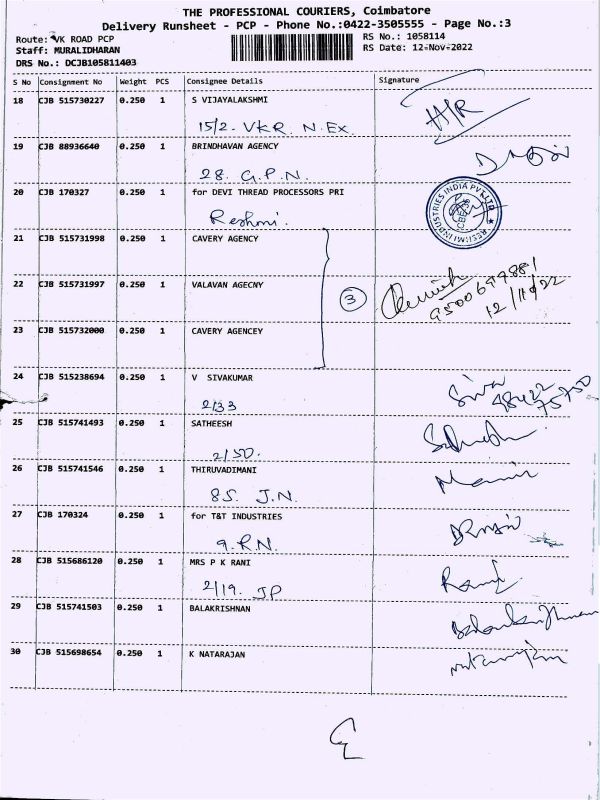 THE PROFESSIONAL COURIERS, Coimbatore
Delivery Runsheet - PCP - Phone No.:0422-3505555 - Page No.:3
Route: VK ROAD PCP
RS No.: 1058114
Staff: MURALIDHARAN
RS Date: 12-Nov-2022
DRS No.: DCJB105811403
S No Consignment No Weight PCS Consignee Details Signature
18 CJB 515730227 0.250 1 S VIJAYALAKSHMI
15/2. VKR. N.Ex.
H/R
19 CJB 88936640 0.250 1 BRINDHAVAN AGENCY
28. G.P.N.
20 CJB 170327 0.250 1 for DEVI THREAD PROCESSORS PRI
Reshmi.
RESHMI INDUSTRIES INDIA PVT LTD
21 CJB 515731998 0.250 1 CAVERY AGENCY
22 CJB 515731997 0.250 1 VALAVAN AGECNY
3
12/11/22
23 CJB 515732000 0.250 1 CAVERY AGENCEY
24 CJB 515238694 0.250 1 V SIVAKUMAR
2/33
Siva
98422
75750
25 CJB 515741493 0.250 1 SATHEESH
2/50.
26 CJB 515741546 0.250 1 THIRUVADIMANI
85. J.N.
Mani
27 CJB 170324 0.250 1 for T&T INDUSTRIES
9. R.N.
28 CJB 515686120 0.250 1 MRS P K RANI
2/19. JP
Rani
29 CJB 515741503 0.250 1 BALAKRISHNAN
30 CJB 515698654 0.250 1 K NATARAJAN